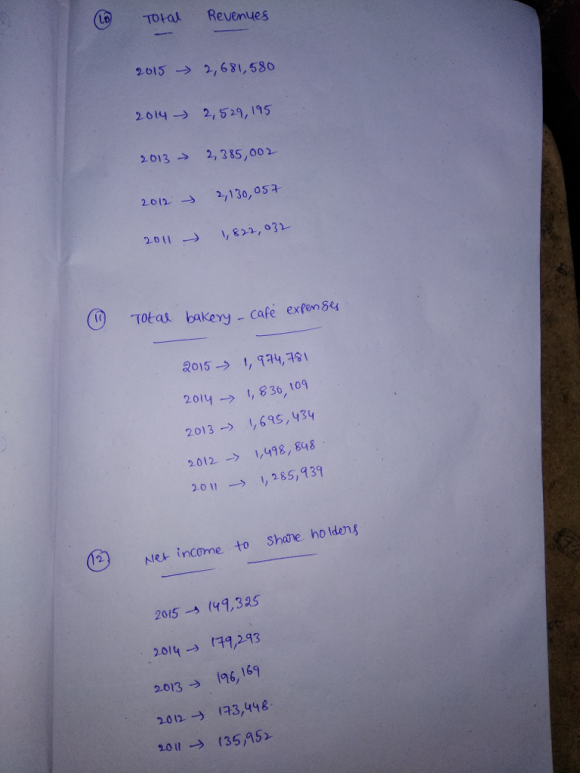 10 Total Revenues
2015 → 2,681,580
2014 → 2,529,195
2013 → 2,385,002
2012 → 2,130,057
2011 → 1,822,032
11 Total bakery - café expenses
2015 → 1,974,781
2014 → 1,830,109
2013 → 1,695,434
2012 → 1,498,848
2011 → 1,285,939
12 Net income to share holders
2015 → 149,325
2014 → 179,293
2013 → 196,169
2012 → 173,448
2011 → 135,952